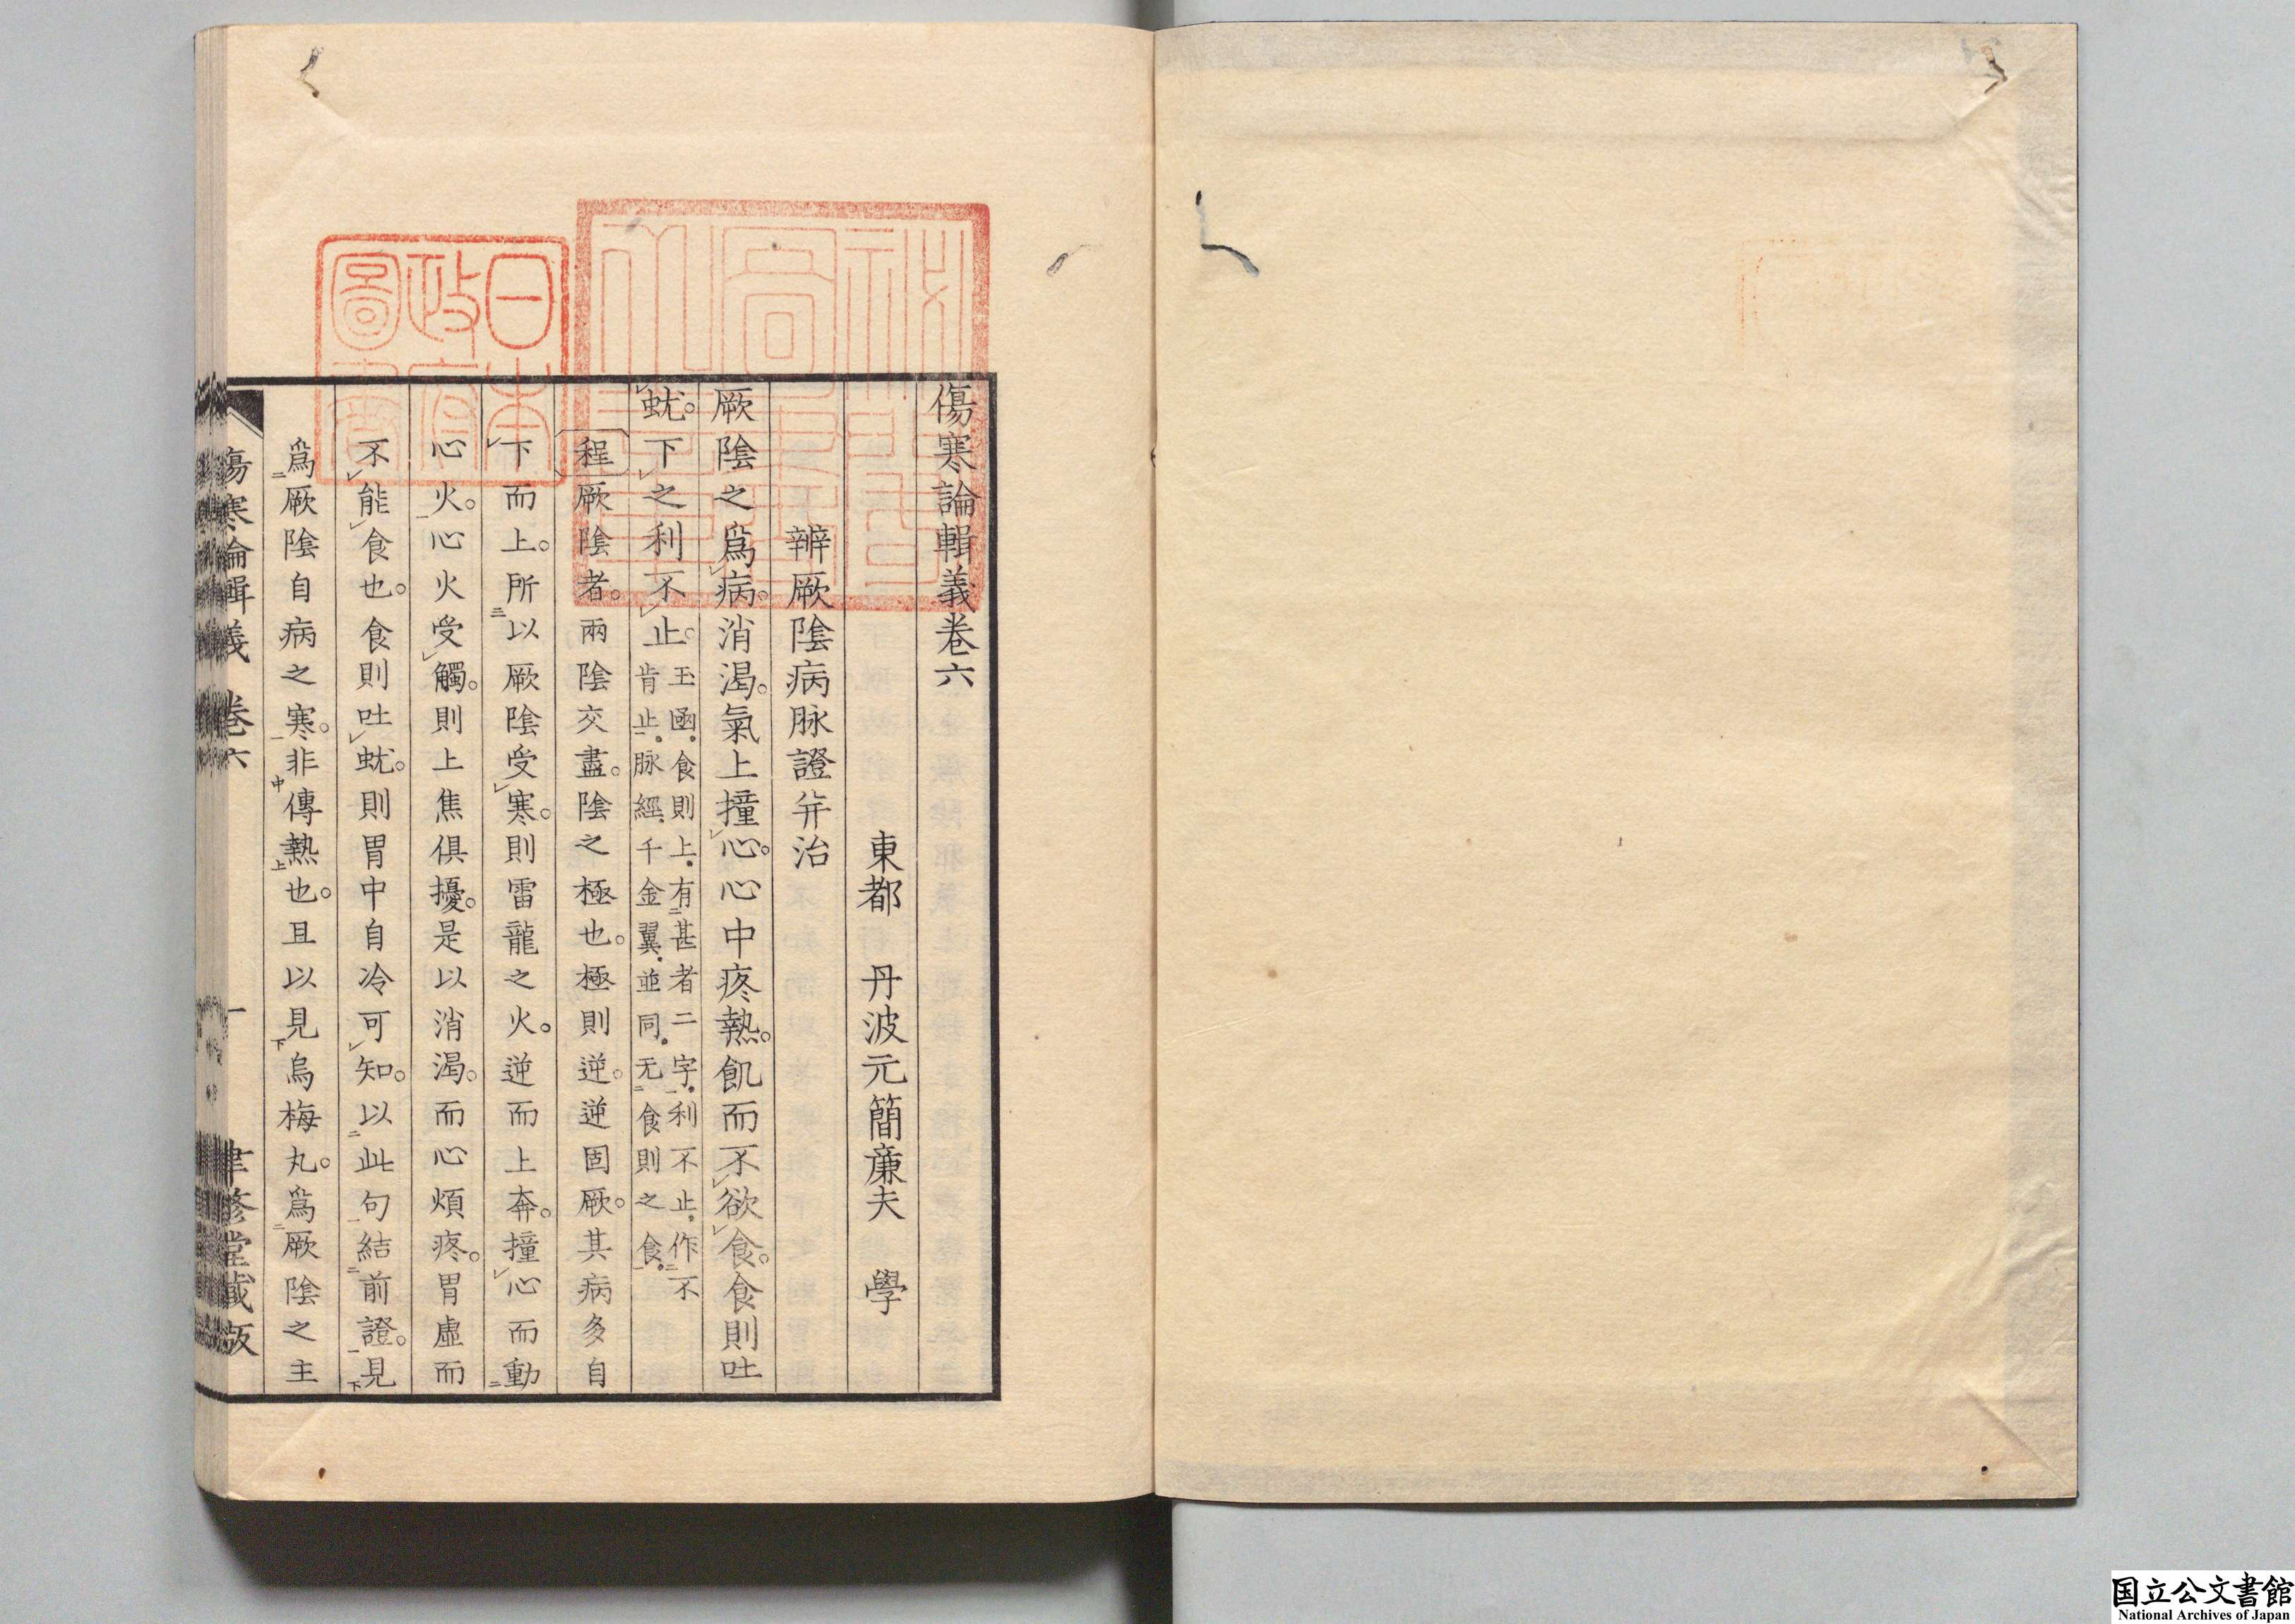 傷寒論輯義卷六
東都 丹波元簡廉夫 學
辨厥陰病脉證并治
厥陰之爲病。消渴。氣上撞心。心中疼熱。飢而不欲食。食則吐
蚘。下之利不止。
玉函。食則上。有甚者二字。利不止。作不
肯止。脉經。千金翼。並同。无食則之食。
程厥陰者。兩陰交盡。陰之極也。極則逆。逆固厥。其病多自
下而上。所以厥陰受寒。則雷龍之火。逆而上奔。撞心而動
心火。心火受觸。則上焦俱擾。是以消渴。而心煩疼。胃虛而
不能食也。食則吐蚘。則胃中自冷可知。以此句結前證。見
爲厥陰自病之寒。非傳熱也。且以見烏梅丸。爲厥陰之主
傷寒論輯義 卷六 一 聿修堂藏版
日本政府圖書
国立公文書館
National Archives of Japan